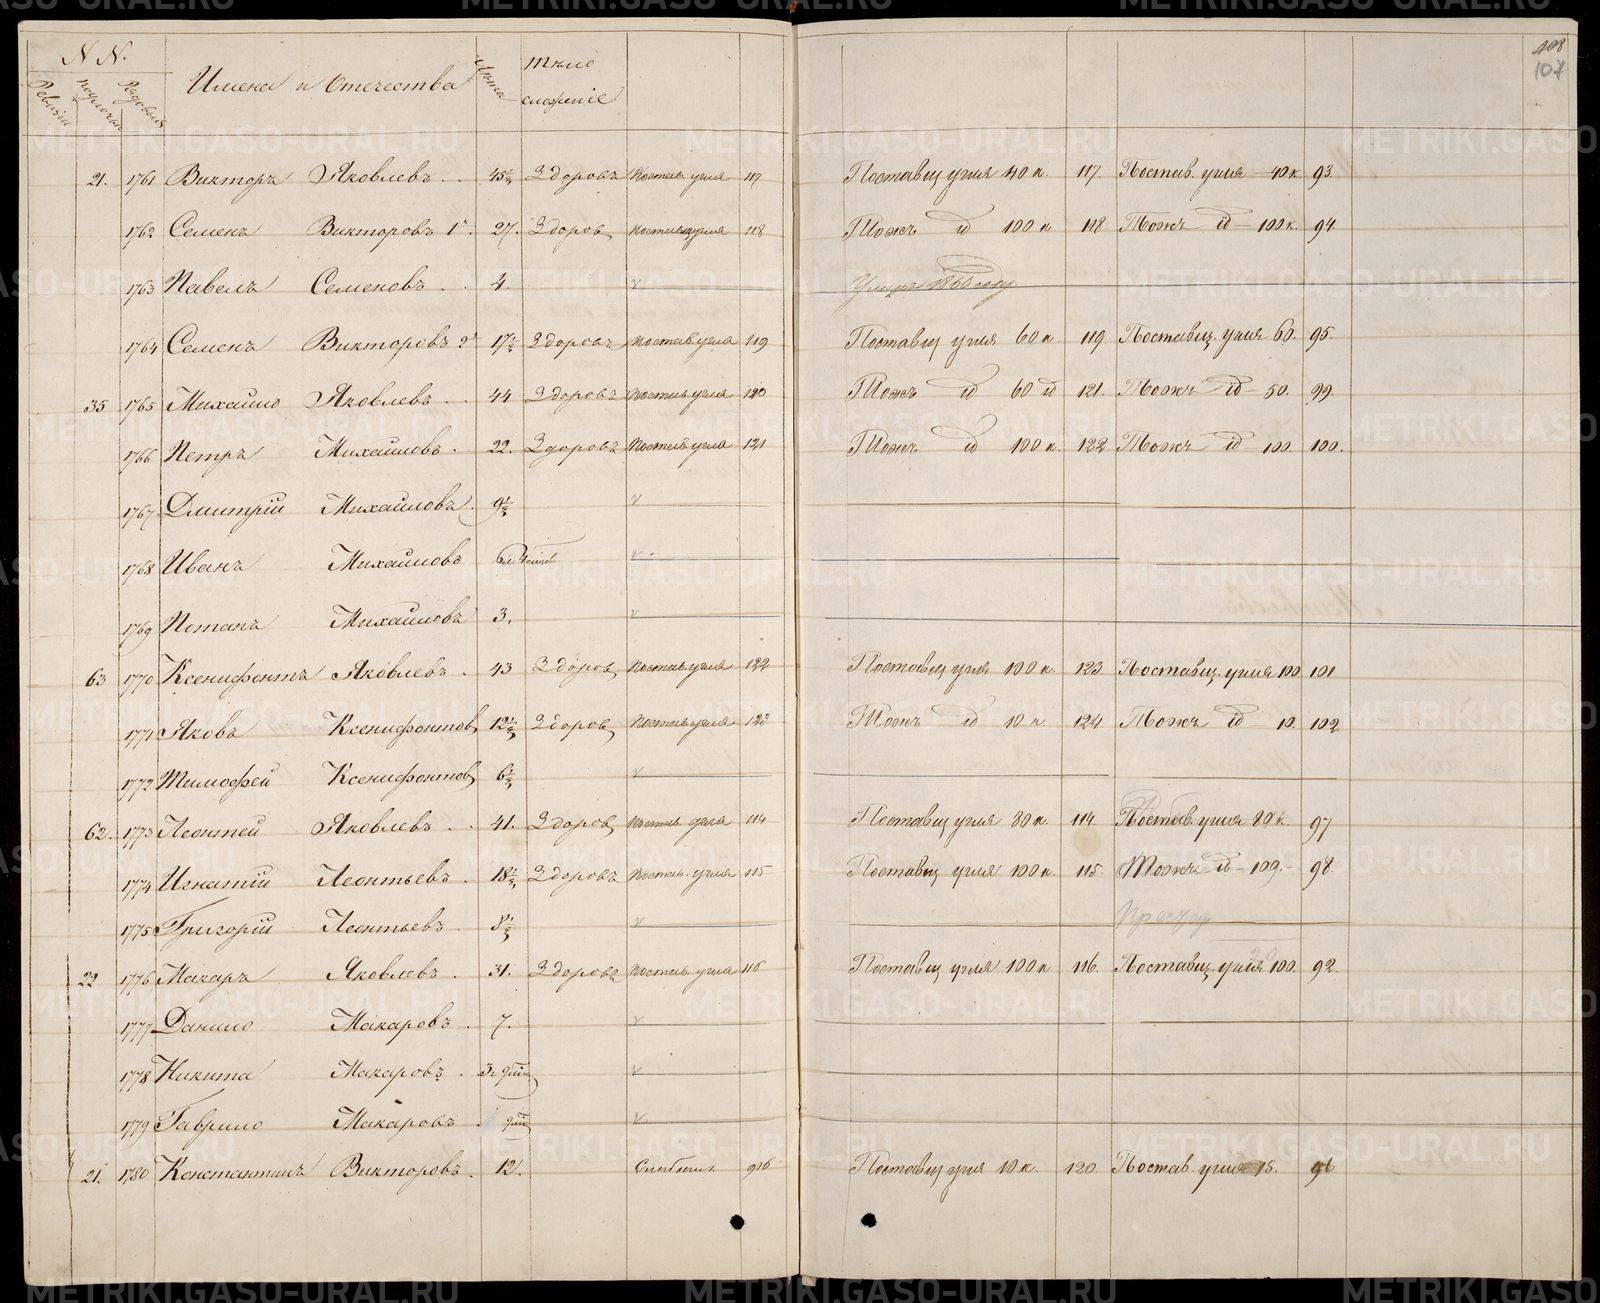 N N.
Ревизіи
Рядовый
Имена и Отечества
Лѣта
тѣло
сложніе
108
107
21. 1761 Викторъ Яковлевъ . . 45½ Здоровъ Постав угля 117 Поставщ угля 40 к. 117. Постав. угля 40 к. 93.
1762 Семенъ Викторовъ 1й. 27. Здоров Поставщ угля 118 Тожъ id 100 к 118 Тожъ id 100 к. 94.
1763 Павелъ Семеновъ . . 4. v Умеръ году
1764 Семенъ Викторовъ 2й 17½ Здоровъ Постав угля 119 Поставщ угля 60 к. 119 Поставщ. угля 60. 95.
35 1765 Михайло Яковлевъ . . 44 Здоровъ Постав угля 120 Тожъ id 60 id 121. Тожъ id 50. 99.
1766 Петръ Михайловъ . 22. Здоровъ Постав угля 121 Тожъ id 100 к. 122 Тожъ id 100. 100.
1767. Дмитрій Михайловъ. 9½ v
1768 Иванъ Михайловъ v
1769 Потапъ Михайловъ 3. v
63 1770 Ксенифонтъ Яковлевъ . 43 Здоров Постав угля 122 Поставщ угля 100 к. 123. Поставщ. угля 100 101
1771 Яковъ Ксенифонтов 12½ Здоров Постав угля 123 Тожъ id 10 к 124 Тожъ id 10. 102.
1772 Тимофей Ксенифонтов 6½ v
62. 1773 Леонтей Яковлевъ . . 41. Здоров Постав угля 114 Поставщ угля 80 к. 114. Постав. угля 80 к. 97
1774 Игнатій Леонтьевъ . 18½ Здоровъ Постав. угля 115 Поставщ угля 100 к. 115. Тожъ id 100. 98.
1775 Григорій Леонтьевъ . 8½ v
22 1776 Макаръ Яковлевъ . 31. Здоровъ Постав угля 116 Поставщ угля 100 к 116. Поставщ. угля 100. 92.
1777 Данило Макаровъ . 7. v
1778 Никита Макаровъ . v
1779 Гаврило Макаровъ . v
21. 1780 Константинъ Викторовъ. 12. 916 Поставщ угля 10 к. 120. Постав. угля 15. 96
METRIKI.GASO-URAL.RU